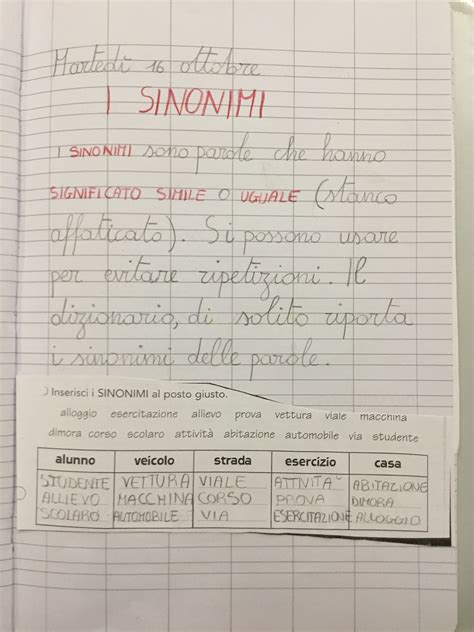 Martedì 16 ottobre
I SINONIMI
I SINONIMI sono parole che hanno
SIGNIFICATO SIMILE O UGUALE (stanco
affaticato). Si possono usare
per evitare ripetizioni. Il
dizionario, di solito riporta
i sinonimi delle parole.
) Inserisci i SINONIMI al posto giusto.
alloggio esercitazione allievo prova vettura viale macchina
dimora corso scolaro attività abitazione automobile via studente
alunno veicolo strada esercizio casa
STUDENTE VETTURA VIALE ATTIVITÀ ABITAZIONE
ALLIEVO MACCHINA CORSO PROVA DIMORA
SCOLARO AUTOMOBILE VIA ESERCITAZIONE ALLOGGIO